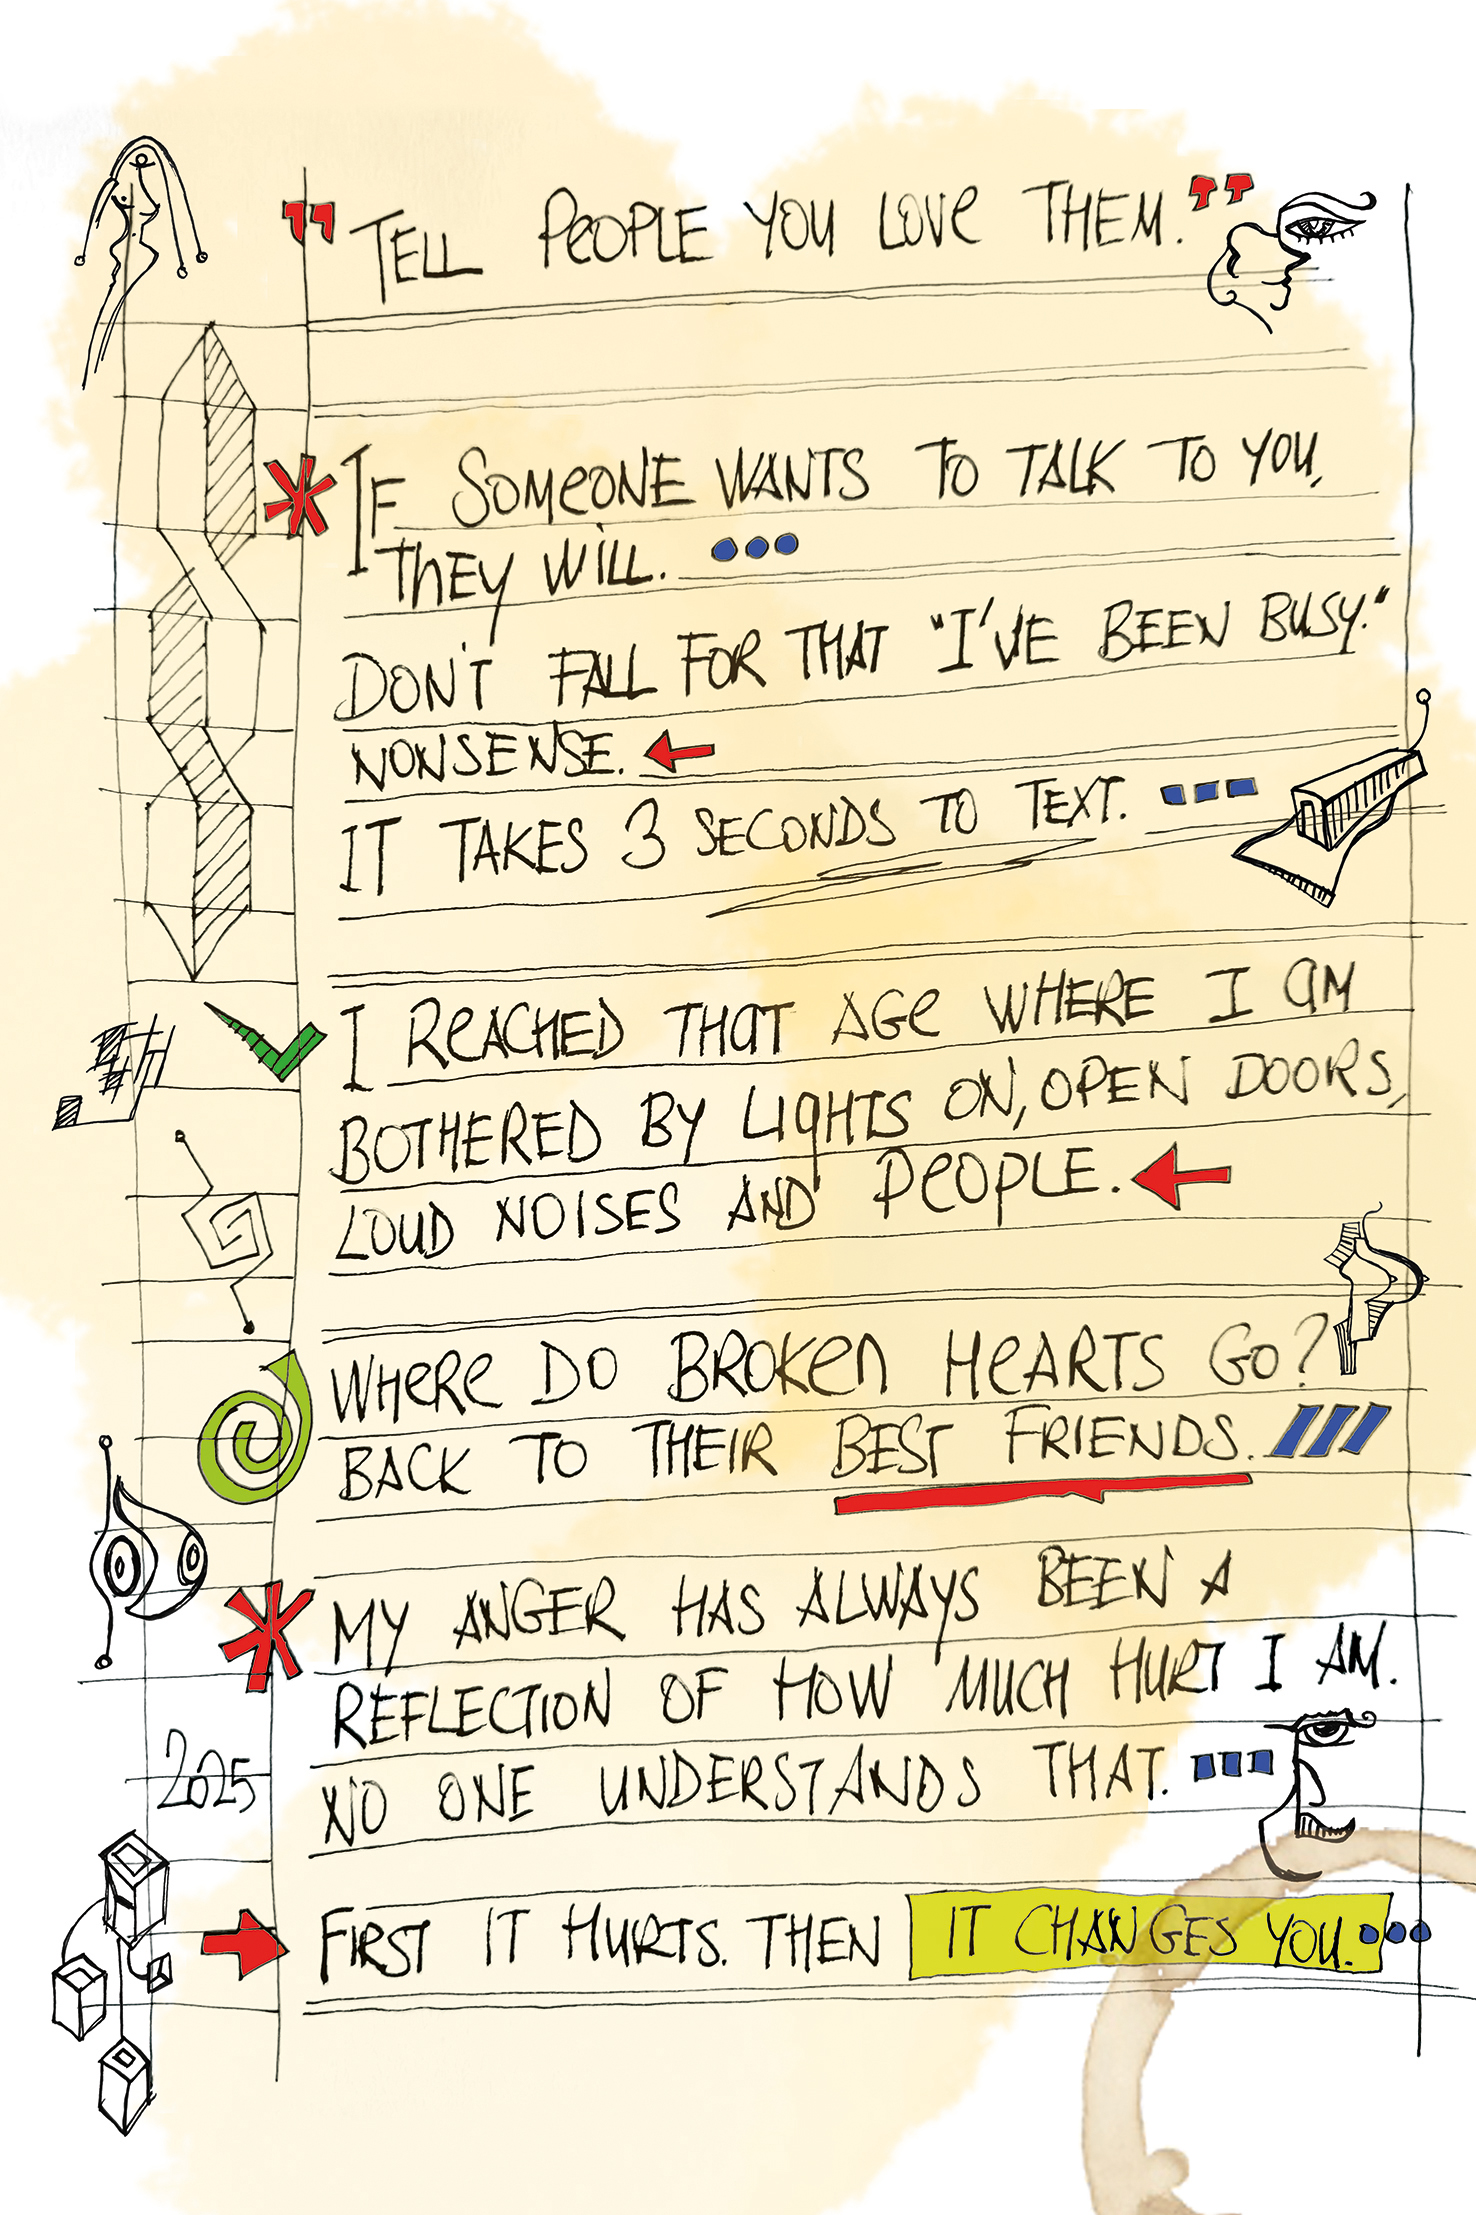 "TELL PEOPLE YOU LOVE THEM."
* IF SOMEONE WANTS TO TALK TO YOU,
THEY WILL. •••
DON'T FALL FOR THAT "I'VE BEEN BUSY."
NONSENSE.
IT TAKES 3 SECONDS TO TEXT.
I REACHED THAT AGE WHERE I AM
BOTHERED BY LIGHTS ON, OPEN DOORS,
LOUD NOISES AND PEOPLE.
WHERE DO BROKEN HEARTS GO?
BACK TO THEIR BEST FRIENDS.
* MY ANGER HAS ALWAYS BEEN A
REFLECTION OF HOW MUCH HURT I AM.
NO ONE UNDERSTANDS THAT.
2025
FIRST IT HURTS. THEN IT CHANGES YOU...